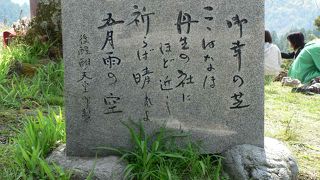 御幸の芝
ここはなほ
丹生の社に
ほど近し
祈らば晴れよ
五月雨の空
後醍醐天皇御製